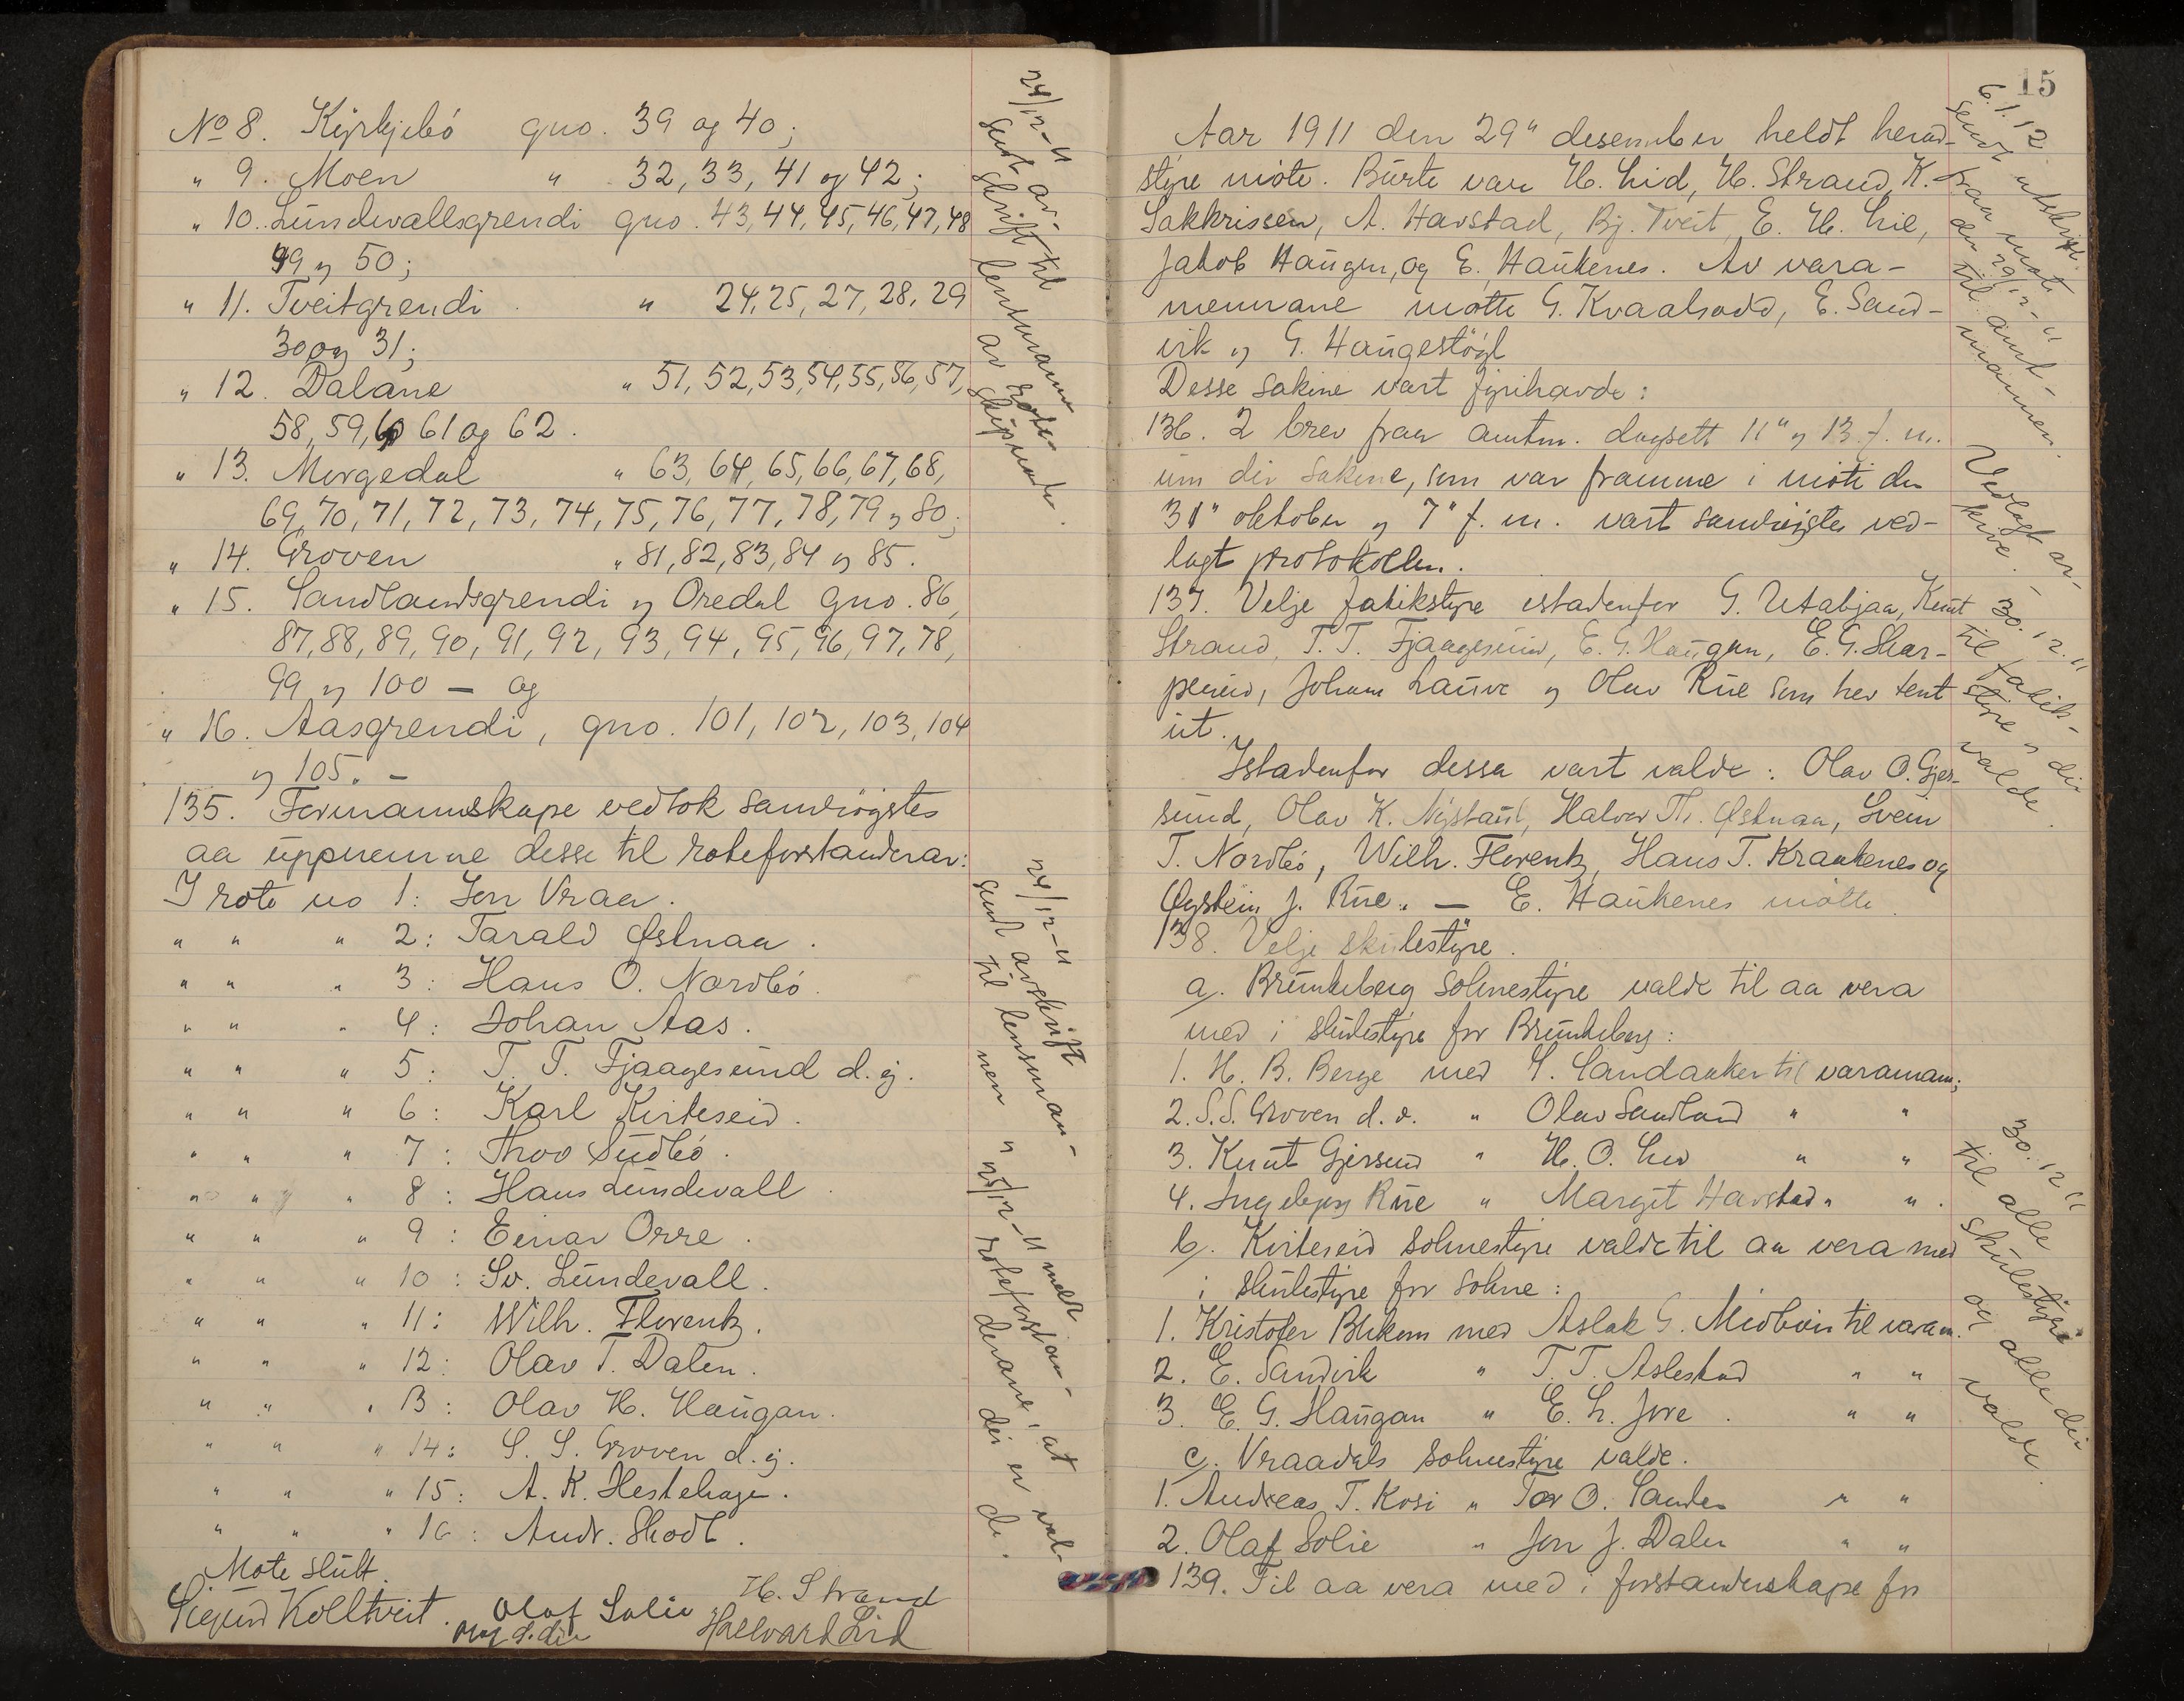 No 8. Kyrkjebö gno. 39 og 40;
" 9. Moen " 32, 33, 41 og 42;
" 10. Lundevallsgrendi gno. 43, 44, 45, 46, 47, 48
49 og 50;
" 11. Tveitgrendi " 24, 25, 27, 28, 29
30 og 31;
" 12. Dalane " 51, 52, 53, 54, 55, 56, 57,
58, 59, 60 61 og 62.
" 13. Morgedal " 63, 64, 65, 66, 67, 68,
69, 70, 71, 72, 73, 74, 75, 76, 77, 78, 79 og 80;
" 14. Groven " 81, 82, 83, 84 og 85.
" 15. Sandlandsgrendi og Öredal gno. 86,
87, 88, 89, 90, 91, 92, 93, 94, 95, 96, 97, 78,
99 og 100 — og
" 16. Aasgrendi, gno. 101, 102, 103, 104
og 105. —
135. Formannskape vedtok samröystes
aa uppnemne desse til roteforstanderar:
I rote no 1: Jon Vraa.
" " " 2: Tarald Østnaa.
" " " 3: Hans O. Nordbö.
" " " 4: Johan Aas.
" " " 5: T. T. Fjaagesund d. y.
" " " 6: Karl Kviteseid.
" " " 7: Thov Sudbö.
" " " 8: Hans Lundevall.
" " " 9: Einar Orre.
" " " 10: Sv. Lundevall.
" " " 11: Wilh. Florentz.
" " " 12: Olav T. Dalen.
" " " 13: Olav H. Haugan.
" " " 14: S. S. Groven d. y.
" " " 15: A. K. Hestehage.
" " " 16: Andr. Skodt.
Mote slutt.
Sigurd Kolltveit. Olaf Solie H. Strand
Hallvard Lid
24/12-11
sent av-
skrift til
lensmann
av rote-
skipnade.
24/12-11
sent avskrift
til lensman-
nen og 25/12-11 meldt
roteforstan-
derane, at
dei er val-
de.
15
Aar 1911 den 29" desember heldt herad-
styre möte. Burte var H. Lid, H. Strand, K.
Sakkrissen, A. Havstad, Bj. Tveit, E. H. Lie,
Jakob Haugen, og E. Haukenes. Av vara-
mennane motte G. Kvaalsodd, E. Sand-
vik og G. Haugestögl
Desse sakine vart fyrihavde:
136. 2 brev fraa amtm. dagsett 11" og 13 f. m.
um dei sakine, som var framme i möti den
31" oktober og 7" f. m. vart samröystes ved-
lagt protokollen.
137. Velje fatikstyre istadenfor G. Utabjaa, Knut
Strand, T. T. Fjaagesund, E. G. Haugan, E. G. Skar-
perud, Johan Lauve og Olav Rue som hev tent
ut.
Istadenfor dessa vart valde: Olav O. Gjer-
sund, Olav K. Nystaul, Halvor Th. Østnaa, Svein
T. Nordbö, Wilh. Florentz, Hans T. Krankenes og
Øystein J. Rue. — E. Haukenes mötte.
138. Velje skulestyre.
a/. Brunkeberg soknestyre valde til aa vera
med i skulestyre for Brunkeberg:
1. H. B. Berge med S. Landaaker til varamann;
2. S. S. Groven d. e. " Olav Sandland " "
3. Knut Gjersund " H. O. Lid " "
4. Ingebjørg Rue " Margit Havstad " ".
b/. Kviteseid soknestyre valde til aa vera med
i skulestyre for sokne:
1. Kristofer Blikom med Aslak G. Midbøen til varam.
2. E. Sandvik " T. T. Aslestad " "
3. E. G. Haugan " E. L. Jore. " "
c/. Vraadals soknestyre valde.
1. Andreas T. Kosi " Tor O. Sanden " "
2. Olaf Solie " Jon J. Dalen " "
139. Til aa vera med i forstanderskape for
6.1.12
sendt utskrift
fraa mote
den 29/12-11
til amt-
mannen.
Vedlagt ar-
kive. —
30.12.11
til fatik-
styre og dei
valde.
30.12.11
til alle
skulestyre
og alle dei
valde.